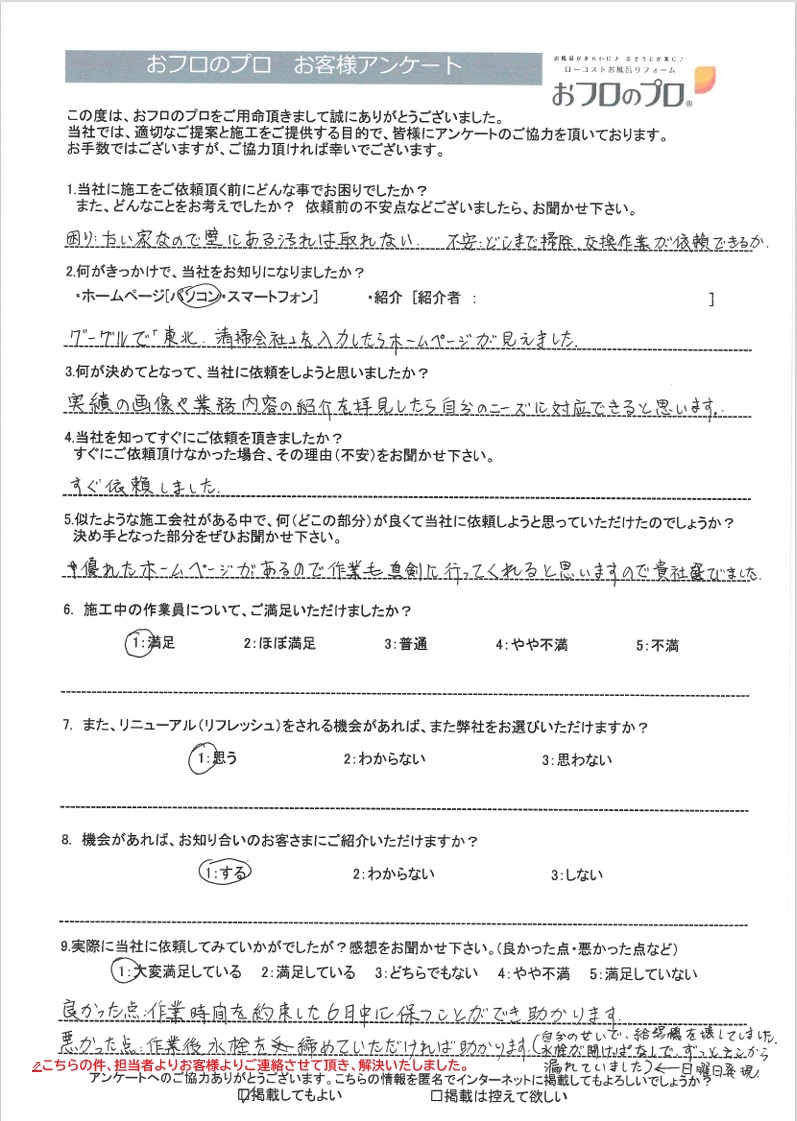 おフロのプロ お客様アンケート
お風呂がきれいに♪ おそうじが楽に♪
ローコストお風呂リフォーム
おフロのプロ®
この度は、おフロのプロをご用命頂きまして誠にありがとうございました。
当社では、適切なご提案と施工をご提供する目的で、皆様にアンケートのご協力を頂いております。
お手数ではございますが、ご協力頂ければ幸いでございます。
1.当社に施工をご依頼頂く前にどんな事でお困りでしたか？
また、どんなことをお考えでしたか？ 依頼前の不安点などございましたら、お聞かせ下さい。
困り:古い家なので壁にある汚れは取れない. 不安:どこまで掃除、交換作業が依頼できるか.
2.何がきっかけで、当社をお知りになりましたか？
・ホームページ[パソコン・スマートフォン] ・紹介 [紹介者 : ]
グーグルで「東北. 清掃会社」を入力したらホームページが見えました.
3.何が決めてとなって、当社に依頼をしようと思いましたか？
実績の画像や業務内容の紹介を拝見したら自分のニーズに対応できると思います.
4.当社を知ってすぐにご依頼を頂きましたか？
すぐにご依頼頂けなかった場合、その理由(不安)をお聞かせ下さい。
すぐ依頼しました.
5.似たような施工会社がある中で、何(どこの部分)が良くて当社に依頼しようと思っていただけたのでしょうか？
決め手となった部分をぜひお聞かせ下さい。
優れたホームページがあるので作業も真剣に行ってくれると思いますので貴社選びました.
6. 施工中の作業員について、ご満足いただけましたか？
1:満足 2:ほぼ満足 3:普通 4:やや不満 5:不満
7. また、リニューアル(リフレッシュ)をされる機会があれば、また弊社をお選びいただけますか？
1:思う 2:わからない 3:思わない
8. 機会があれば、お知り合いのお客さまにご紹介いただけますか？
1:する 2:わからない 3:しない
9.実際に当社に依頼してみていかがでしたか？感想をお聞かせ下さい。(良かった点・悪かった点など)
1:大変満足している 2:満足している 3:どちらでもない 4:やや不満 5:満足していない
良かった点:作業時間を約束した6月中に保つことができ助かります.
悪かった点:作業後水栓を締めていただければ助かります.(自分のせいで、給湯機を壊してしました.
水栓が開けぱなしで、ずっと
漏れていました)←日曜日発現
※こちらの件、担当者よりお客様よりご連絡させて頂き、解決いたしました。
アンケートへのご協力ありがとうございます。こちらの情報を匿名でインターネットに掲載してもよろしいでしょうか？
☑掲載してもよい □掲載は控えて欲しい